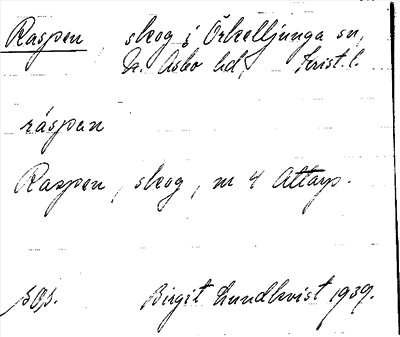 Raspen, skog i Örkelljunga sn,
N. Åsbo hd, Krist. l.
ráspən
Raspen, skog, nr 4 Attarp.
sop. Birgit Lundkvist 1939.